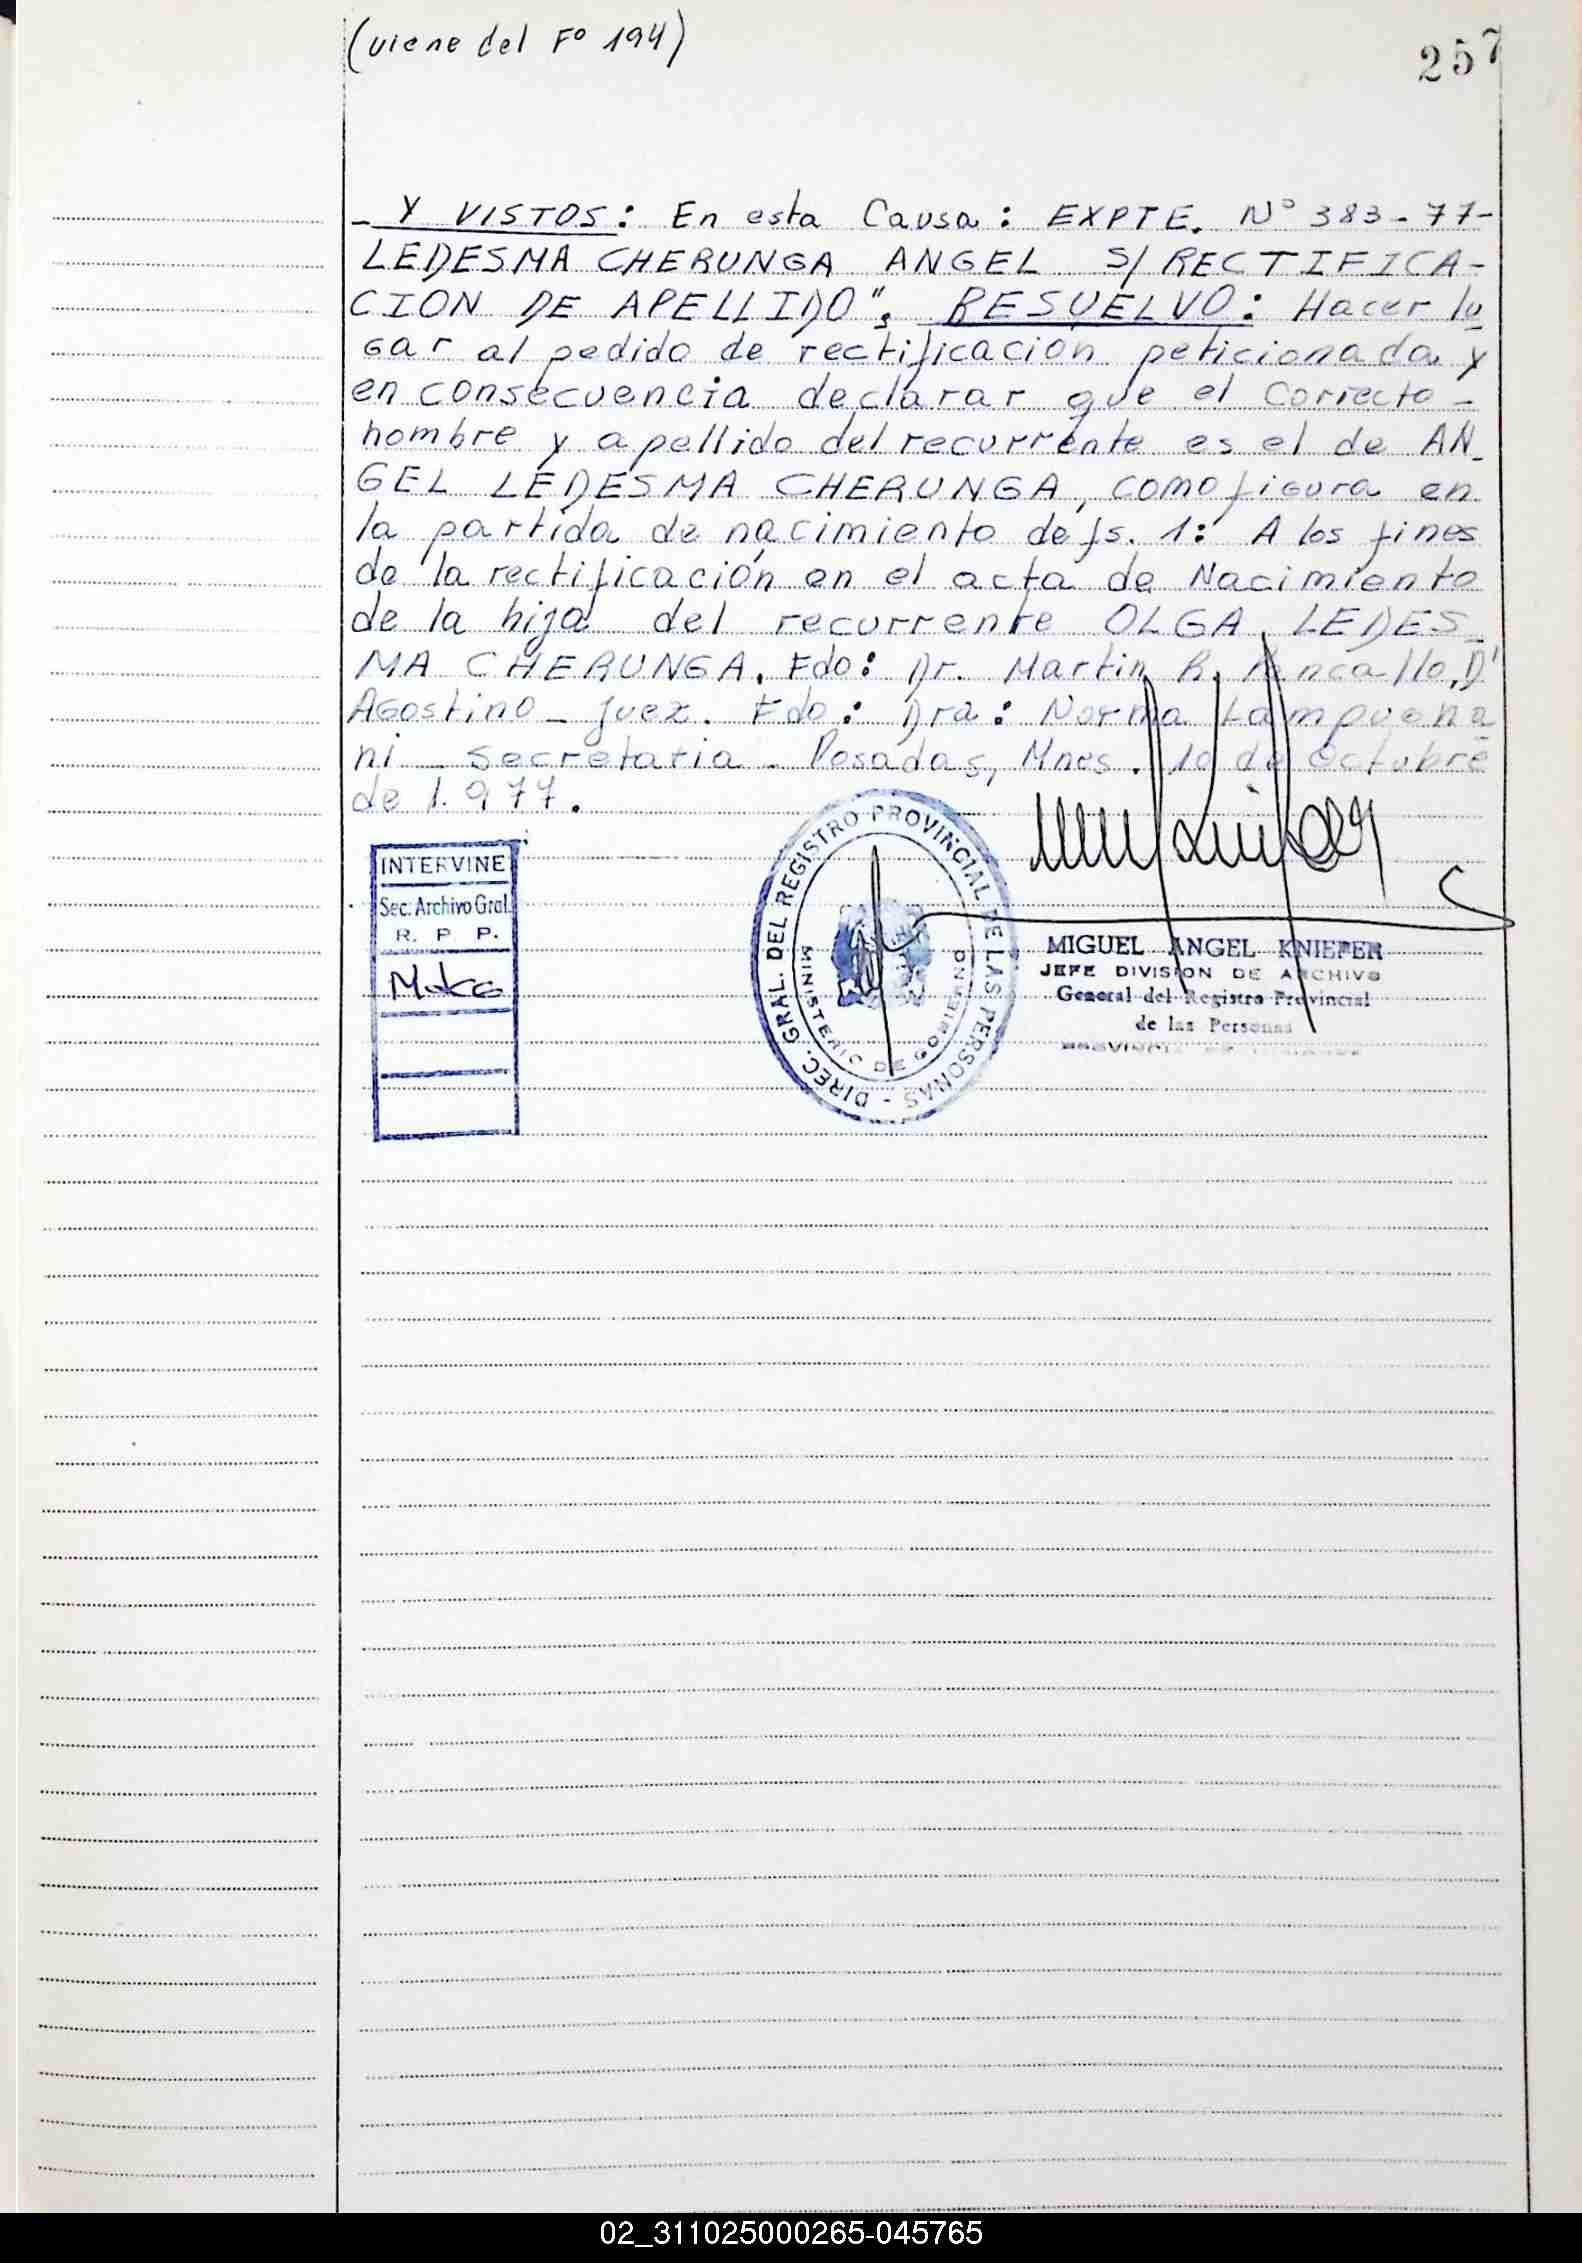 (viene del Fº 194)
257
_ Y VISTOS: En esta Causa: EXPTE. Nº 383-77-
LEDESMA CHERUNGA ANGEL S/ RECTIFICA-
CION DE APELLIDO", RESUELVO: Hacer lu
gar al pedido de rectificación peticionada y
en consecuencia declarar que el correcto -
nombre y apellido del recurrente es el de AN_
GEL LEDESMA CHERUNGA, como figura en
la partida de nacimiento de fs. 1: A los fines
de la rectificación en el acta de Nacimiento
de la hija del recurrente OLGA LEDES_
MA CHERUNGA. Fdo: Dr. Martin R. D'
Agostino - Juez. Fdo: Dra: Norma Lampugna
ni - Secretaria - Posadas, Mnes. 10 de Octubre
de 1.977.
INTERVINE
Sec. Archivo Gral.
R. P. P.
DIREC. GRAL. DEL REGISTRO PROVINCIAL DE LAS PERSONAS -
MINISTERIO DE GOBIERNO
MIGUEL ANGEL KNIEFER
JEFE DIVISION DE ARCHIVO
General del Registro Provincial
de las Personas
02_311025000265-045765